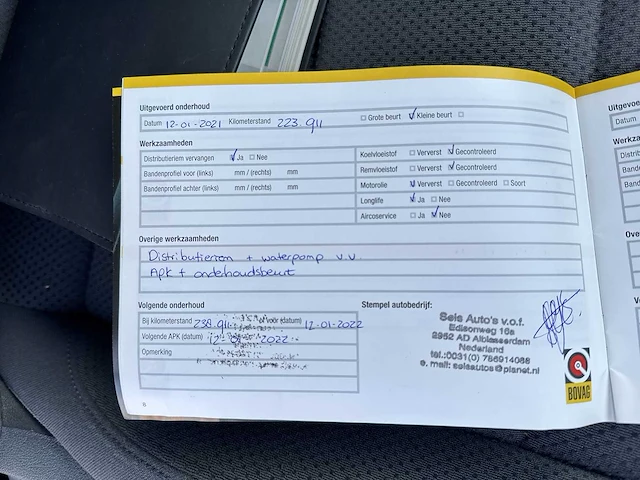 Uitgevoerd onderhoud
Datum 12-01-2021 Kilometerstand 223.911 Grote beurt Kleine beurt
Werkzaamheden
Distributieriem vervangen Ja Nee
Bandenprofiel voor (links) mm / (rechts) mm
Bandenprofiel achter (links) mm / (rechts) mm
Koelvloeistof Ververst Gecontroleerd
Remvloeistof Ververst Gecontroleerd
Motorolie Ververst Gecontroleerd Soort
Longlife Ja Nee
Aircoservice Ja Nee
Overige werkzaamheden
Distributieriem + waterpomp v.v.
Apk + onderhoudsbeurt
Volgende onderhoud
Bij kilometerstand 238.911 of vóór (datum) 12-01-2022
Volgende APK (datum) 12-01-2022
Opmerking
Stempel autobedrijf:
Sels Auto's v.o.f.
Edisonweg 16a
2952 AD Alblasserdam
Nederland
tel.:0031(0) 786914088
e. mail: selsautos@planet.nl
BOVAG
6
Uitgevoerd
Datum
Werkza
Distrib
Bande
Bande
Ove
Vo